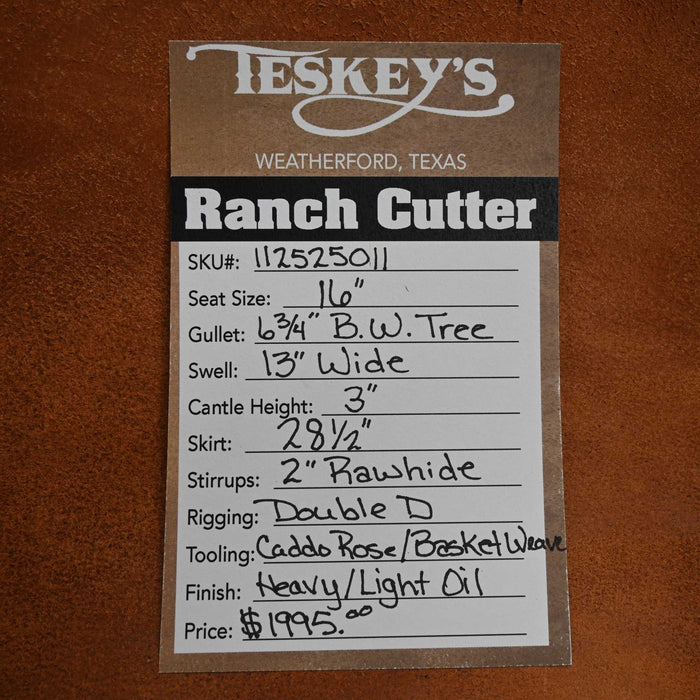 TESKEY'S
WEATHERFORD, TEXAS
Ranch Cutter
SKU#: 112525011
Seat Size: 16"
Gullet: 6 3/4" B.W. Tree
Swell: 13" Wide
Cantle Height: 3"
Skirt: 28 1/2"
Stirrups: 2" Rawhide
Rigging: Double D
Tooling: Caddo Rose/Basket Weave
Finish: Heavy/Light Oil
Price: $1995.00